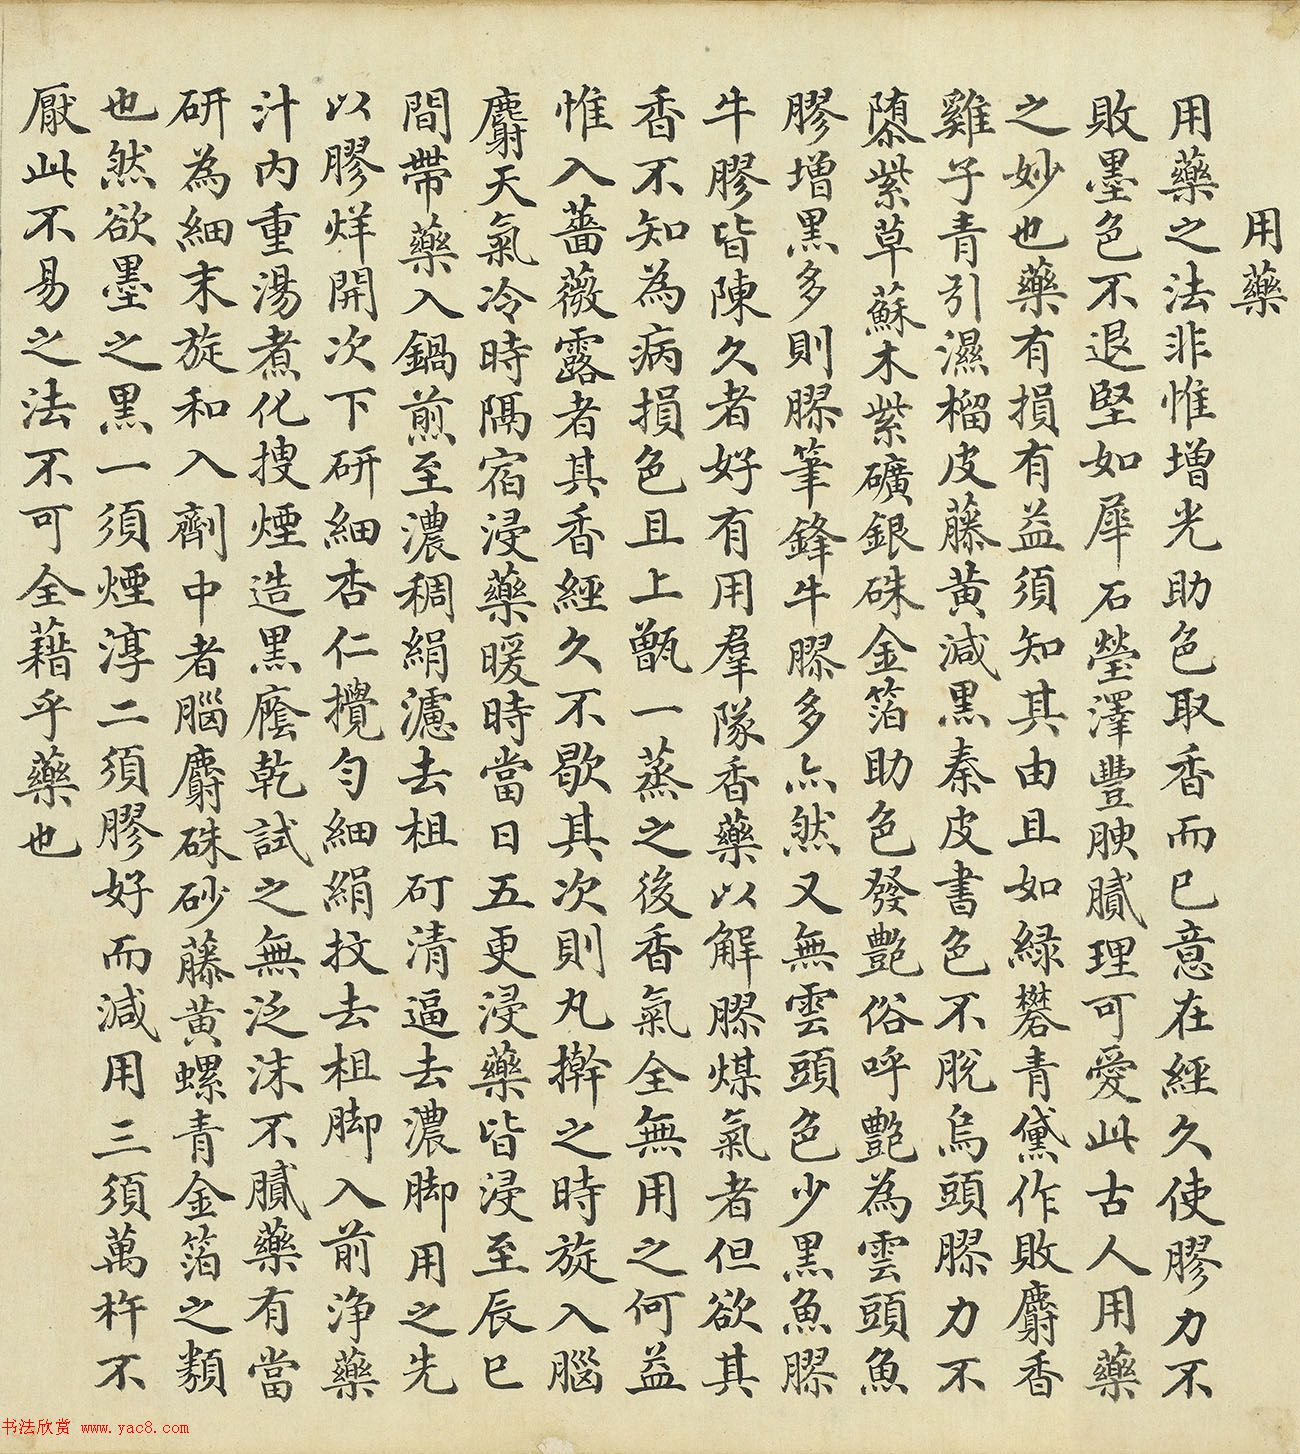 用藥
用藥之法非惟增光助色取香而已意在經久使膠力不
敗墨色不退堅如犀石瑩澤豐腴膩理可愛此古人用藥
之妙也藥有損有益須知其由且如緑礬青黛作敗麝香
雞子青引濕榴皮藤黄減黒秦皮書色不脫烏頭膠力不
隳紫草蘇木紫礦銀硃金箔助色發艶俗呼艶為雲頭魚
膠增黒多則膠筆鋒牛膠多亦然又無雲頭色少黒魚膠
牛膠皆陳久者好有用羣隊香藥以解膠煤氣者但欲其
香不知為病損色且上甑一蒸之後香氣全無用之何益
惟入薔薇露者其香經久不歇其次則丸擀之時旋入腦
麝天氣冷時隔宿浸藥暖時當日五更浸藥皆浸至辰巳
間帶藥入鍋煎至濃稠絹濾去柤矴清逼去濃脚用之先
以膠烊開次下研細杏仁攪勻細絹抆去柤脚入前浄藥
汁内重湯煮化搜煙造黒廕乾試之無泛沫不膩藥有當
研為細末旋和入劑中者腦麝硃砂藤黄螺青金箔之類
也然欲墨之黒一須煙淳二須膠好而減用三須萬杵不
厭此不易之法不可全藉乎藥也
书法欣赏 www.yac8.com